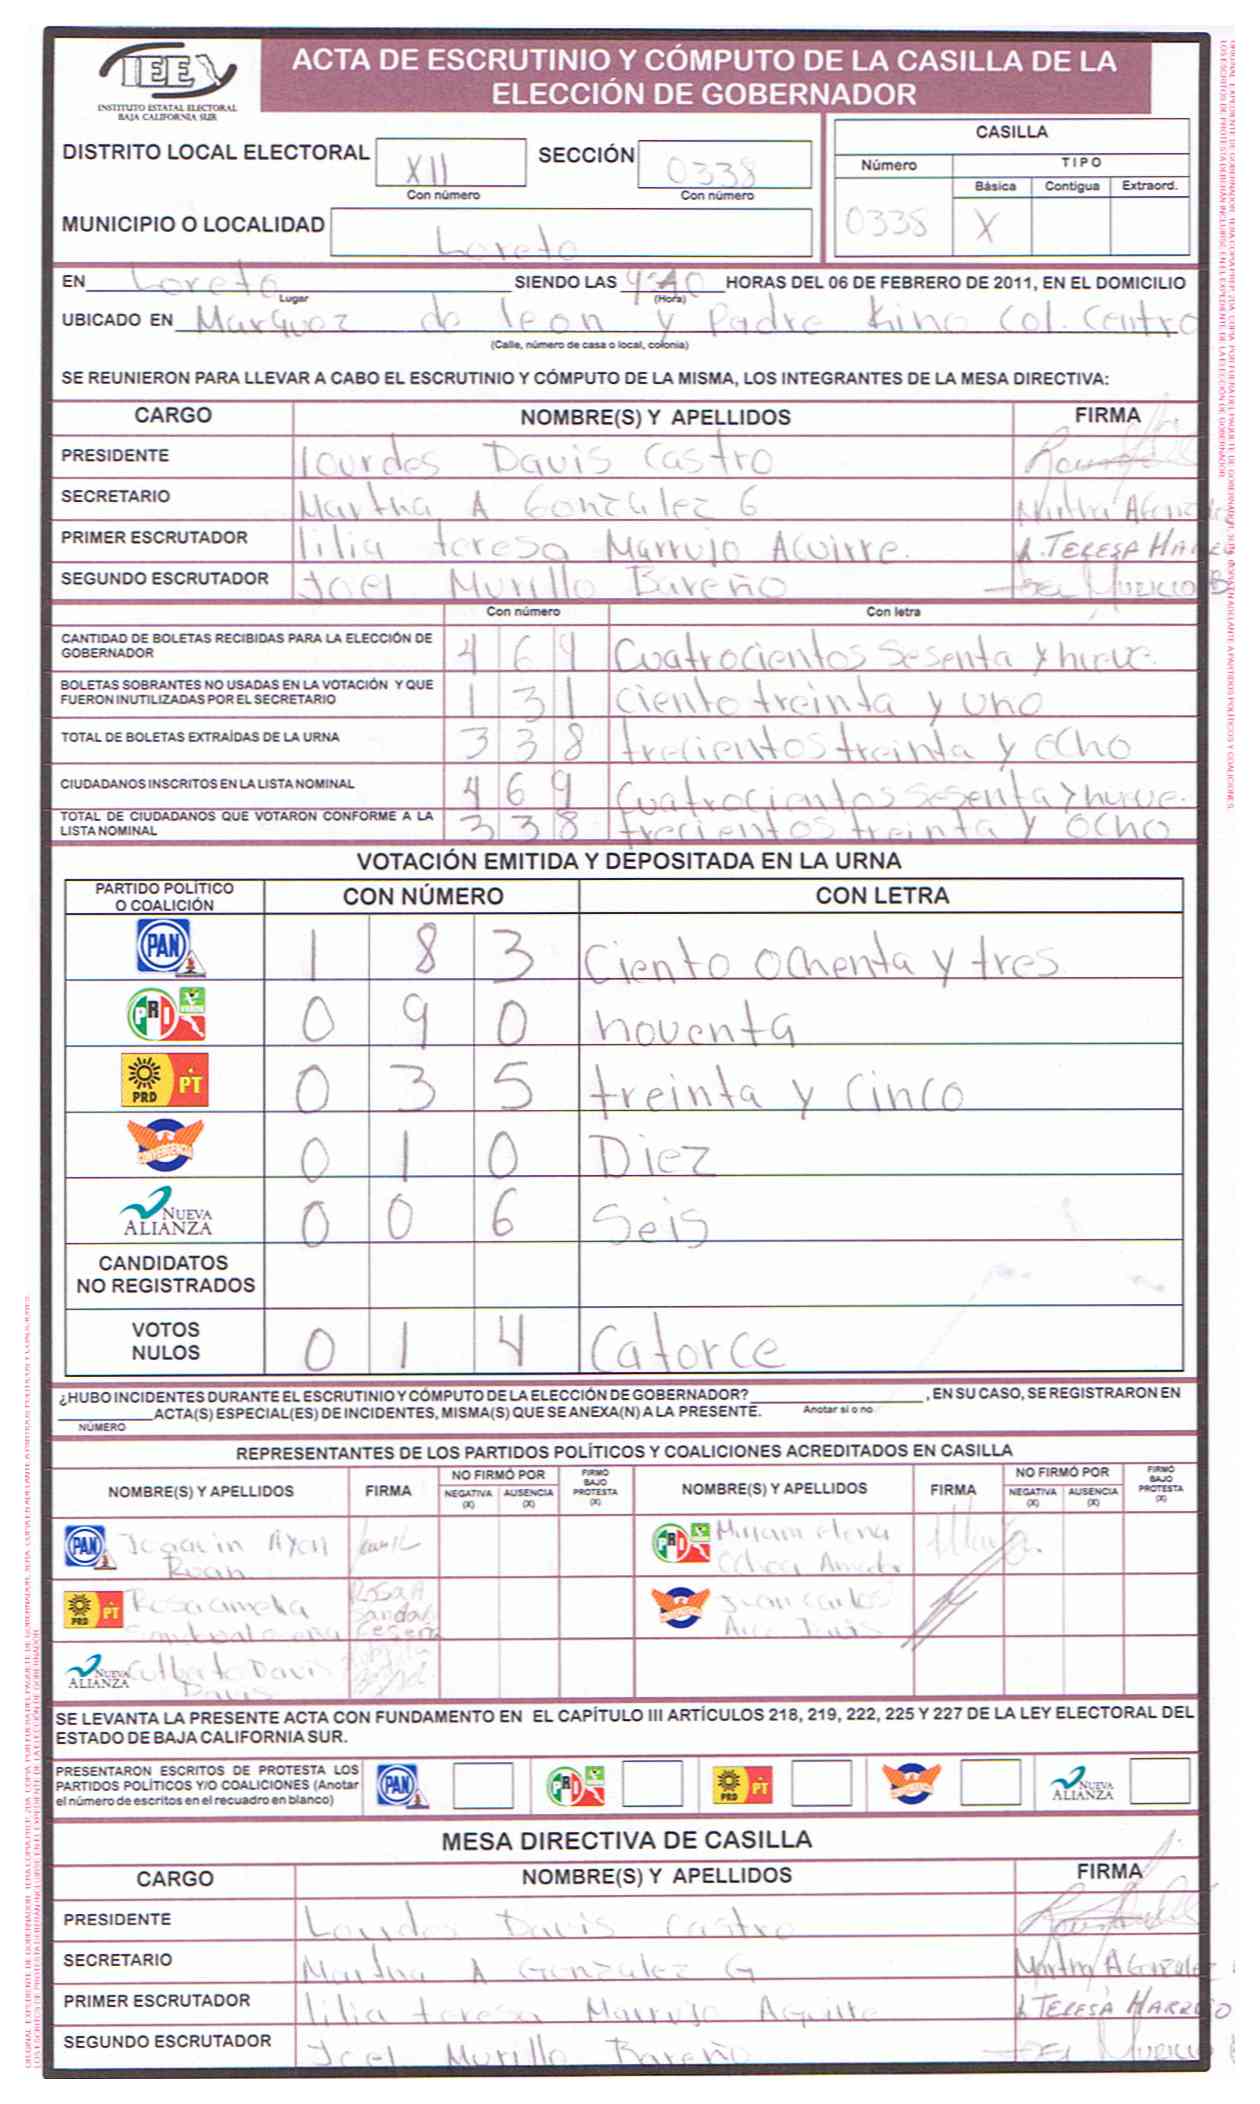 IEE
INSTITUTO ESTATAL ELECTORAL
BAJA CALIFORNIA SUR
ACTA DE ESCRUTINIO Y CÓMPUTO DE LA CASILLA DE LA
ELECCIÓN DE GOBERNADOR
DISTRITO LOCAL ELECTORAL XII SECCIÓN 0338
Con número Con número
MUNICIPIO O LOCALIDAD Loreto
CASILLA
Número TIPO
Básica Contigua Extraord.
0338 X
EN Loreto SIENDO LAS HORAS DEL 06 DE FEBRERO DE 2011, EN EL DOMICILIO
Lugar (Hora)
UBICADO EN Marquez de leon y Padre Kino Col. Centro
(Calle, número de casa o local, colonia)
SE REUNIERON PARA LLEVAR A CABO EL ESCRUTINIO Y CÓMPUTO DE LA MISMA, LOS INTEGRANTES DE LA MESA DIRECTIVA:
CARGO NOMBRE(S) Y APELLIDOS FIRMA
PRESIDENTE Lourdes Davis Castro
SECRETARIO Martha A González G
PRIMER ESCRUTADOR lilia teresa Marrujo Aguirre. L. TERESA MARRUJO
SEGUNDO ESCRUTADOR Joel Murillo Bareño JOEL MURILLO B
Con número Con letra
CANTIDAD DE BOLETAS RECIBIDAS PARA LA ELECCIÓN DE
GOBERNADOR 4 6 9 Cuatrocientos sesenta y nueve.
BOLETAS SOBRANTES NO USADAS EN LA VOTACIÓN Y QUE
FUERON INUTILIZADAS POR EL SECRETARIO 1 3 1 ciento treinta y uno
TOTAL DE BOLETAS EXTRAÍDAS DE LA URNA 3 3 8 trecientos treinta y ocho
CIUDADANOS INSCRITOS EN LA LISTA NOMINAL 4 6 9 Cuatrocientos sesenta y nueve.
TOTAL DE CIUDADANOS QUE VOTARON CONFORME A LA
LISTA NOMINAL 3 3 8 trecientos treinta y ocho
VOTACIÓN EMITIDA Y DEPOSITADA EN LA URNA
PARTIDO POLÍTICO
O COALICIÓN CON NÚMERO CON LETRA
PAN 1 8 3 Ciento ochenta y tres
PRI VERDE 0 9 0 noventa
PRD PT 0 3 5 treinta y cinco
CONVERGENCIA 0 1 0 Diez
NUEVA
ALIANZA 0 0 6 Seis
CANDIDATOS
NO REGISTRADOS
VOTOS
NULOS 0 1 4 Catorce
¿HUBO INCIDENTES DURANTE EL ESCRUTINIO Y CÓMPUTO DE LA ELECCIÓN DE GOBERNADOR? , EN SU CASO, SE REGISTRARON EN
ACTA(S) ESPECIAL(ES) DE INCIDENTES, MISMA(S) QUE SE ANEXA(N) A LA PRESENTE. Anotar si o no
NÚMERO
REPRESENTANTES DE LOS PARTIDOS POLÍTICOS Y COALICIONES ACREDITADOS EN CASILLA
NOMBRE(S) Y APELLIDOS FIRMA NO FIRMÓ POR NEGATIVA (X) AUSENCIA (X) FIRMÓ BAJO PROTESTA (X) NOMBRE(S) Y APELLIDOS FIRMA NO FIRMÓ POR NEGATIVA (X) AUSENCIA (X) FIRMÓ BAJO PROTESTA (X)
PAN Joaquin PRI Miriam elena
Ochoa
PRD PT Rosa amelia Rosa A CONVERGENCIA Juan Carlos
Arce Davis
NUEVA
ALIANZA Davis
Davis
SE LEVANTA LA PRESENTE ACTA CON FUNDAMENTO EN EL CAPÍTULO III ARTÍCULOS 218, 219, 222, 225 Y 227 DE LA LEY ELECTORAL DEL
ESTADO DE BAJA CALIFORNIA SUR.
PRESENTARON ESCRITOS DE PROTESTA LOS
PARTIDOS POLÍTICOS Y/O COALICIONES (Anotar
el número de escritos en el recuadro en blanco) PAN PRI PRD PT CONVERGENCIA NUEVA ALIANZA
MESA DIRECTIVA DE CASILLA
CARGO NOMBRE(S) Y APELLIDOS FIRMA
PRESIDENTE Lourdes Davis Castro
SECRETARIO Martha A González G Martha A González
PRIMER ESCRUTADOR lilia teresa Marrujo Aguirre L. TERESA MARRUJO
SEGUNDO ESCRUTADOR Joel Murillo Bareño JOEL MURILLO